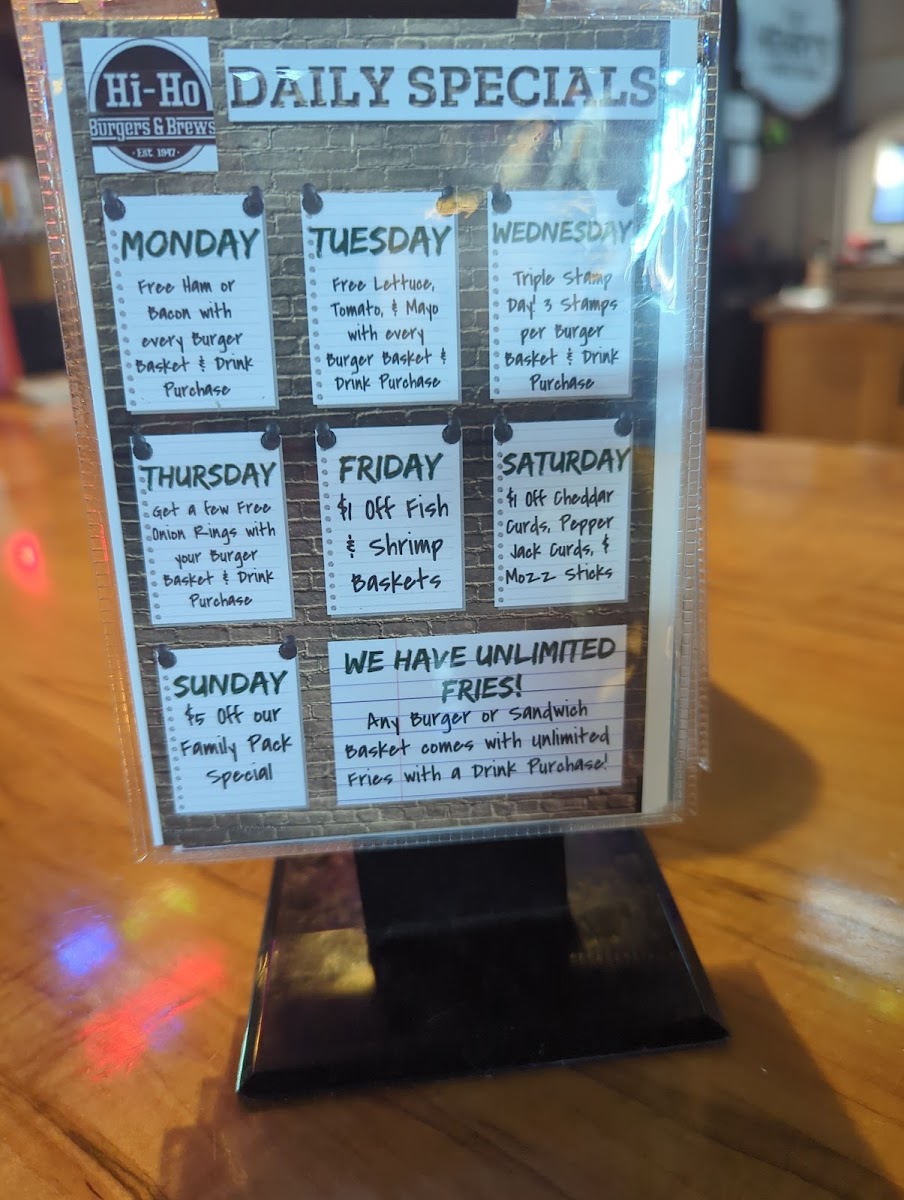 Hi-Ho
Burgers & Brews
· Est. 1947 ·
DAILY SPECIALS
MONDAY
Free Ham or
Bacon with
every Burger
Basket & Drink
Purchase
TUESDAY
Free Lettuce,
Tomato, & Mayo
with every
Burger Basket &
Drink Purchase
WEDNESDAY
Triple Stamp
Day! 3 Stamps
per Burger
Basket & Drink
Purchase
THURSDAY
Get a few Free
Onion Rings with
your Burger
Basket & Drink
Purchase
FRIDAY
$1 Off Fish
& Shrimp
Baskets
SATURDAY
$1 Off Cheddar
Curds, Pepper
Jack Curds, &
Mozz Sticks
SUNDAY
$5 Off our
Family Pack
Special
WE HAVE UNLIMITED
FRIES!
Any Burger or Sandwich
Basket comes with unlimited
Fries with a Drink Purchase!